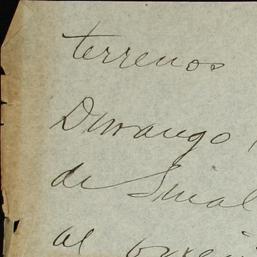 terrenos
Durango
de Sinal
al